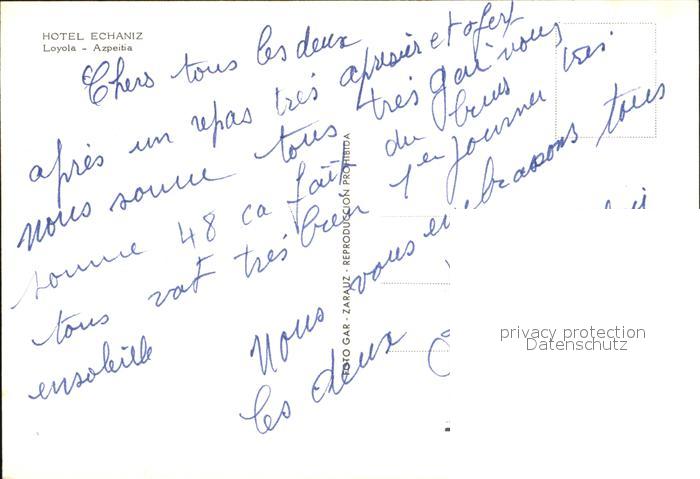 HOTEL ECHANIZ
Loyola - Azpeitia
Chers tous les deux
après un repas très aprisier et ofert
nous somme tous très gai nous
somme 48 ca fait du brus
tous vat très bien 1er journer très
ensoleille
Nous vous embrassons tous
les deux
FOTO GAR - ZARAUZ - REPRODUCCION PROHIBIDA
privacy protection
Datenschutz